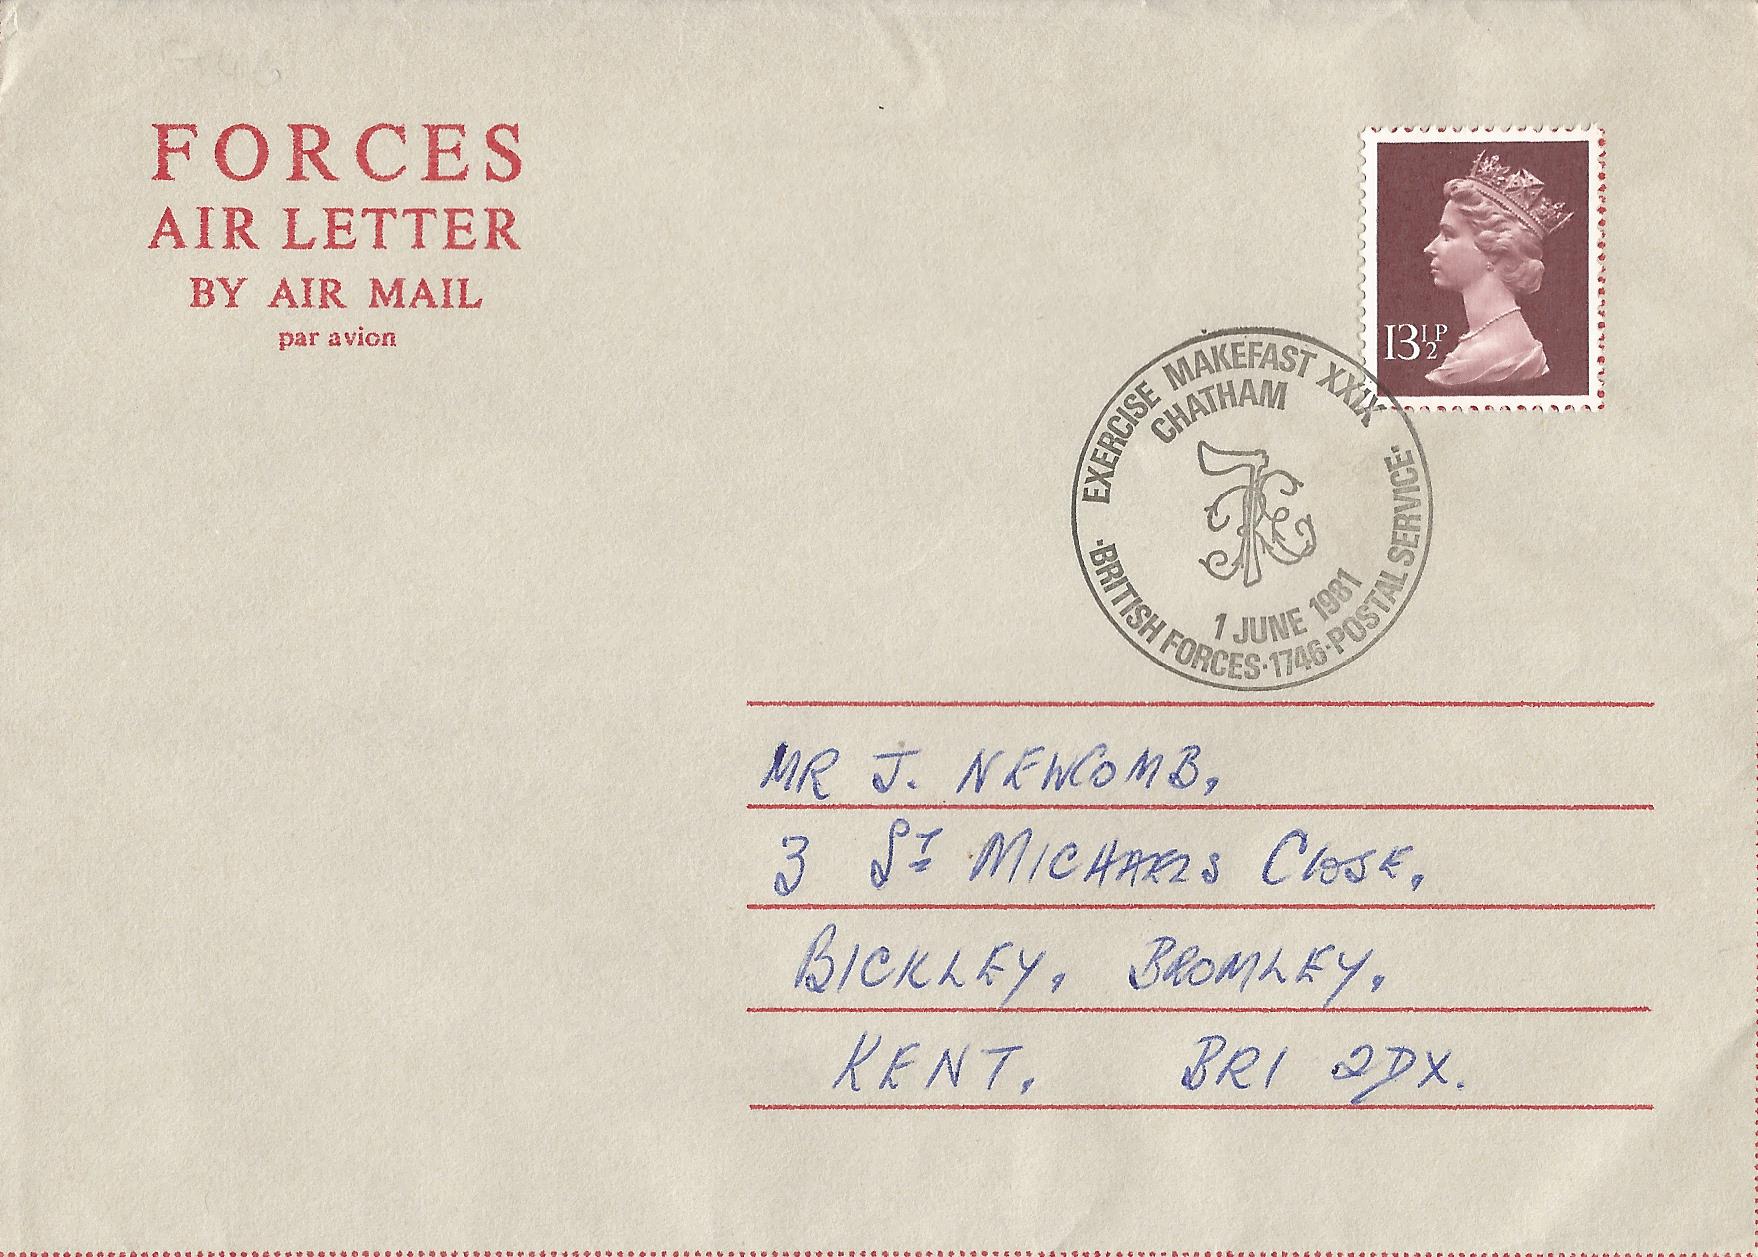 FORCES
AIR LETTER
BY AIR MAIL
par avion
13½P
EXERCISE MAKEFAST XXIX
CHATHAM
1 JUNE 1981
·BRITISH FORCES·1746·POSTAL SERVICE·
MR J. NEWCOMB,
3 ST MICHAELS CLOSE,
BICKLEY, BROMLEY,
KENT, BR1 2DX.